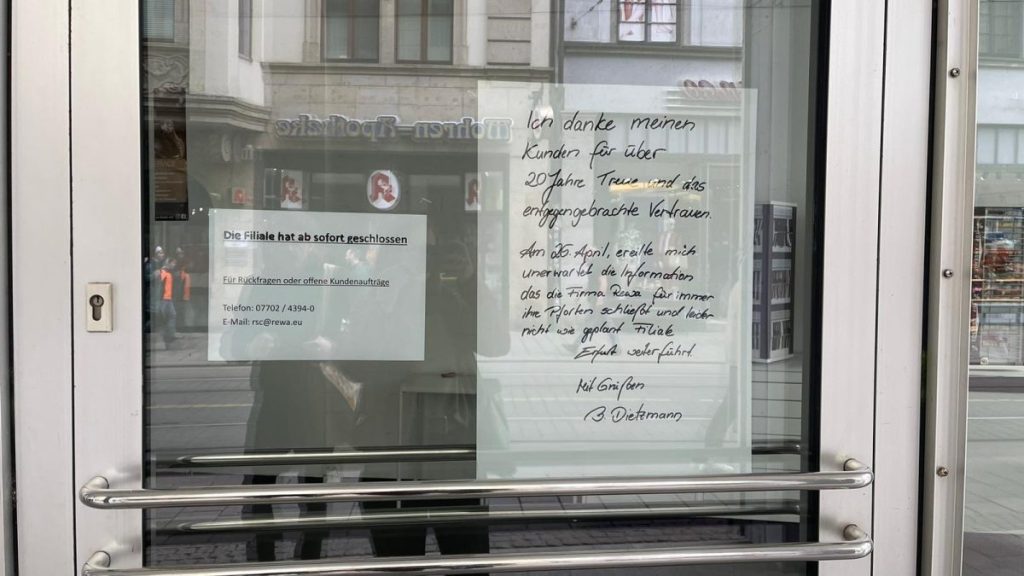 Mohren-Apotheke
Die Filiale hat ab sofort geschlossen
Für Rückfragen oder offene Kundenaufträge
Telefon: 07702 / 4394-0
E-Mail: rsc@rewa.eu
Ich danke meinen
Kunden für über
20 Jahre Treue und das
entgegengebrachte Vertrauen.
Am 26. April, ereilte mich
unerwartet die Information
das die Firma Rewa für immer
ihre Pforten schließt und leider
nicht wie geplant Filiale
Erfurt weiterführt.
Mit Grüßen
B. Dietzmann